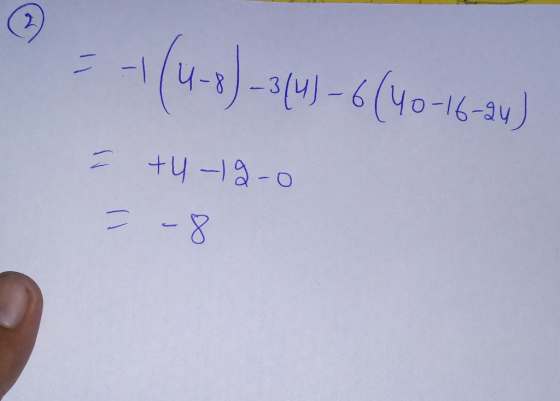 2
= -1(4-8)-3(4)-6(40-16-24)
= +4-12-0
= -8